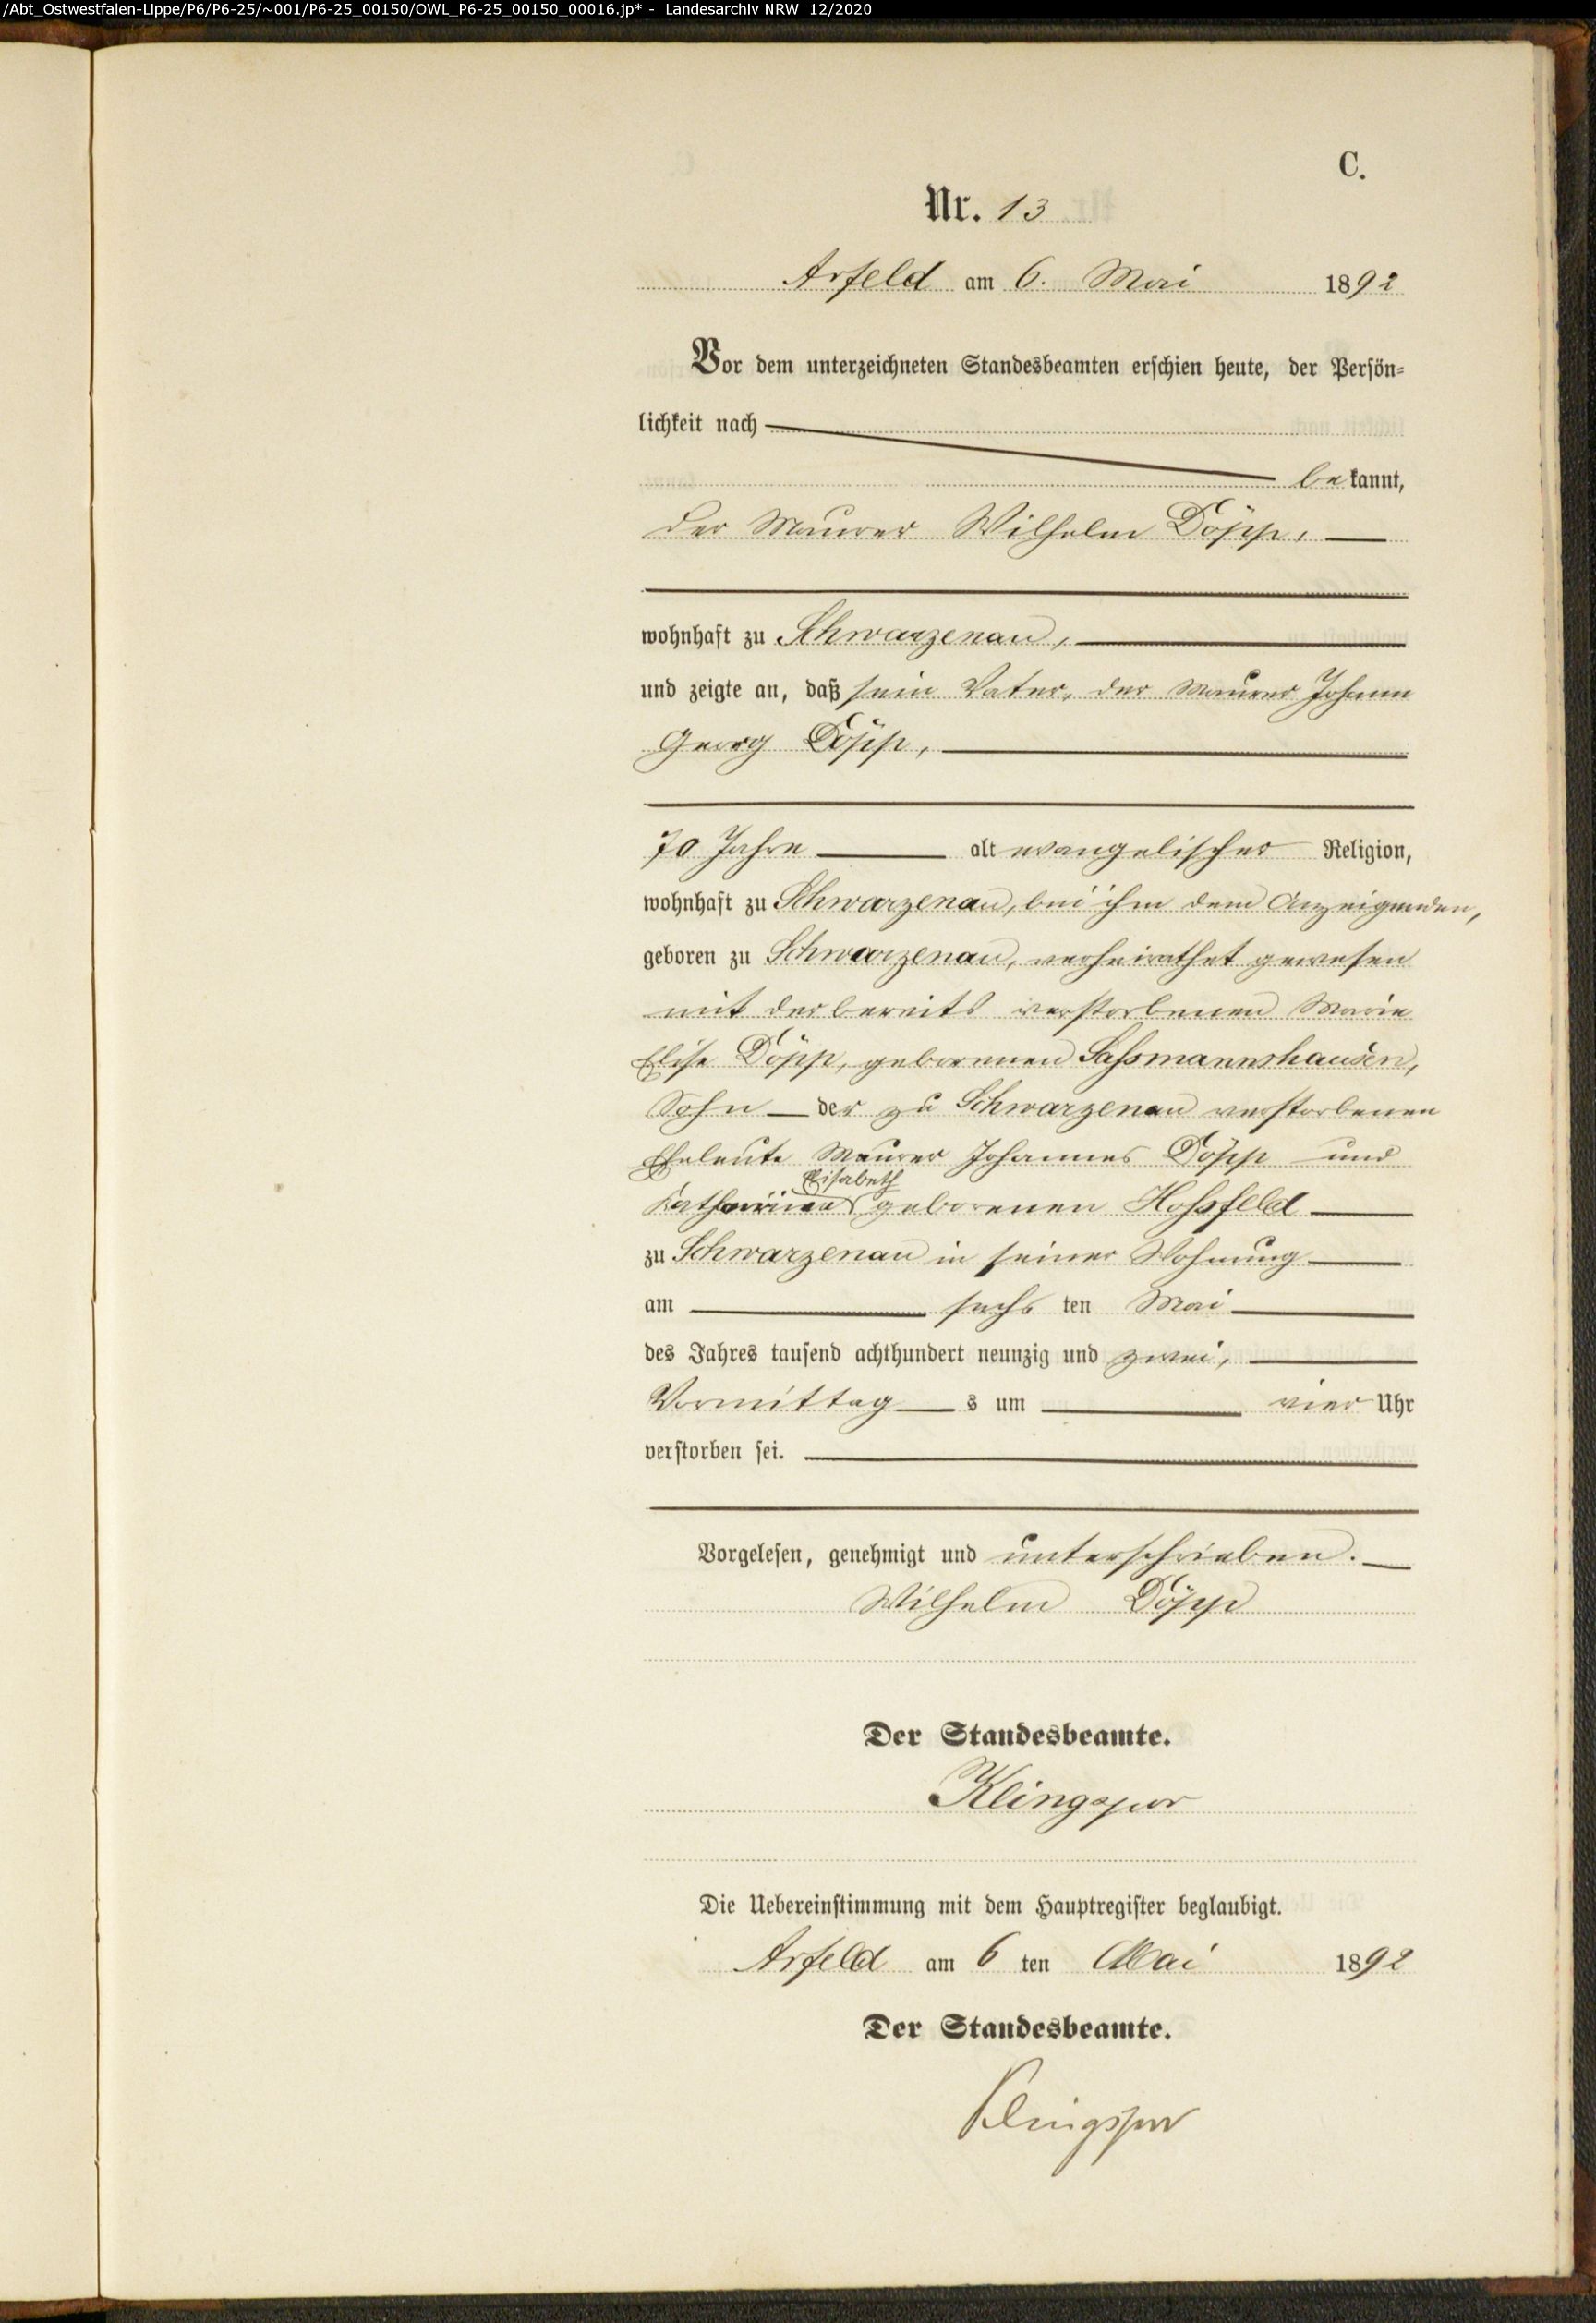 /Abt_Ostwestfalen-Lippe/P6/P6-25/~001/P6-25_00150/OWL_P6-25_00150_00016.jp* - Landesarchiv NRW 12/2020
C.
Nr. 13
Arfeld am 6. Mai 1892
Vor dem unterzeichneten Standesbeamten erschien heute, der Persön-
lichkeit nach
bekannt,
der Maurer Wilhelm Döpp,
wohnhaft zu Schwarzenau,
und zeigte an, daß sein Vater, der Maurer Johann
Georg Döpp,
70 Jahre alt evangelischer Religion,
wohnhaft zu Schwarzenau, bei ihm dem Anzeigenden,
geboren zu Schwarzenau, verheirathet gewesen
mit der bereits verstorbenen Marie
Elise Döpp, geborenen Saßmannshausen,
Sohn der zu Schwarzenau verstorbenen
Eheleute Maurer Johannes Döpp und
Elisabeth
Katharina geborenen Hoßfeld
zu Schwarzenau in seiner Wohnung
am sechs ten Mai
des Jahres tausend achthundert neunzig und zwei,
Vormittag s um vier Uhr
verstorben sei.
Vorgelesen, genehmigt und unterschrieben.
Wilhelm Döpp
Der Standesbeamte.
Klingspor
Die Uebereinstimmung mit dem Hauptregister beglaubigt.
Arfeld am 6 ten Mai 1892
Der Standesbeamte.
Klingspor